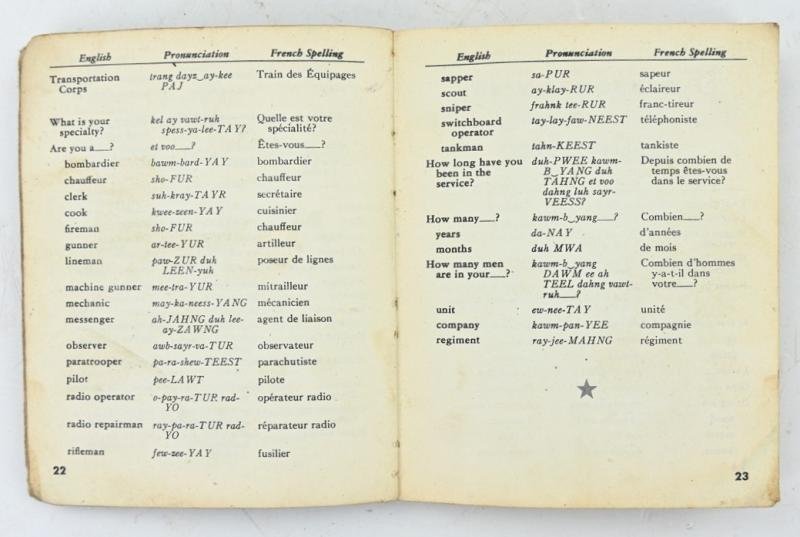 English Pronunciation French Spelling
Transportation trang dayz‿ay-kee Train des Équipages
Corps PAJ
What is your kel ay vawt-ruh Quelle est votre
specialty? spess-ya-lee-TAY? spécialité?
Are you a___? et voo___? Êtes-vous___?
bombardier bawm-bard-YAY bombardier
chauffeur sho-FUR chauffeur
clerk suh-kray-TAYR secrétaire
cook kwee-zeen-YAY cuisinier
fireman sho-FUR chauffeur
gunner ar-tee-YUR artilleur
lineman paw-ZUR duh poseur de lignes
LEEN-yuh
machine gunner mee-tra-YUR mitrailleur
mechanic may-ka-neess-YANG mécanicien
messenger ah-JAHNG duh lee- agent de liaison
ay-ZAWNG
observer awb-sayr-va-TUR observateur
paratrooper pa-ra-shew-TEEST parachutiste
pilot pee-LAWT pilote
radio operator o-pay-ra-TUR rad- opérateur radio
YO
radio repairman ray-pa-ra-TUR rad- réparateur radio
YO
rifleman few-zee-YAY fusilier
22
English Pronunciation French Spelling
sapper sa-PUR sapeur
scout ay-klay-RUR éclaireur
sniper frahnk tee-RUR franc-tireur
switchboard tay-lay-faw-NEEST téléphoniste
operator
tankman tahn-KEEST tankiste
How long have you duh-PWEE kawm- Depuis combien de
been in the B‿YANG duh temps êtes-vous
service? TAHNG et voo dans le service?
dahng luh sayr-
VEESS?
How many___? kawm-b‿yang___? Combien___?
years da-NAY d'années
months duh MWA de mois
How many men kawm-b‿yang Combien d'hommes
are in your___? DAWM ee ah y-a-t-il dans
TEEL dahng vawt- votre___?
ruh___?
unit ew-nee-TAY unité
company kawm-pan-YEE compagnie
regiment ray-jee-MAHNG régiment
23